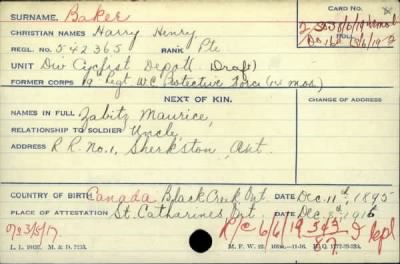 SURNAME. Baker CARD NO.
CHRISTIAN NAMES Harry Henry
REGL. NO. 542365 RANK Pte. FOLL.
UNIT Div Cyclist Depott (Draft)
FORMER CORPS 19th Regt W.C. Protective Force (14 mos.)
NEXT OF KIN. CHANGE OF ADDRESS
NAMES IN FULL Zabitz Maurice,
RELATIONSHIP TO SOLDIER Uncle,
ADDRESS R.R. No. 1, Sherkston, Ont.
COUNTRY OF BIRTH Canada Black Creek, Ont. DATE Dec. 11th, 1895
PLACE OF ATTESTATION St. Catharines, Ont. DATE Dec. 1916
R/C 6/6/19
L. L. M. & D. M. F. W. H. Q.